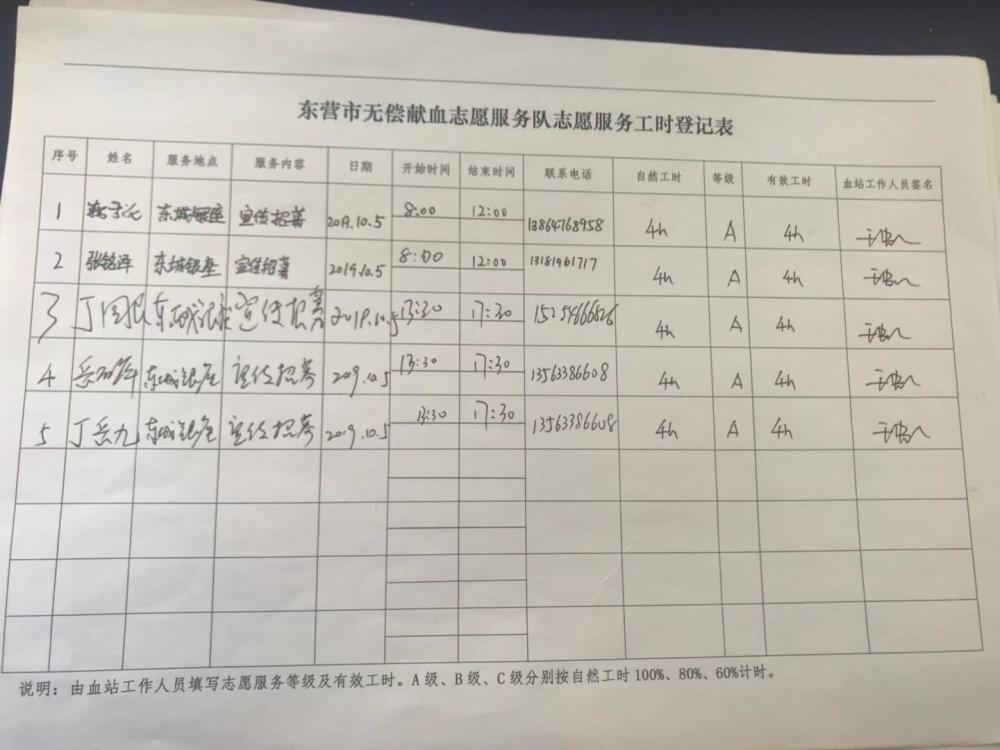 东营市无偿献血志愿服务队志愿服务工时登记表
序号 姓名 服务地点 服务内容 日期 开始时间 结束时间 联系电话 自然工时 等级 有效工时 血站工作人员签名
1 东城银座 宣传招募 2019.10.5 8:00 12:00 13864768958 4h A 4h
2 张铭洋 东城银座 宣传招募 2019.10.5 8:00 12:00 13181961717 4h A 4h
3 东城银座 宣传招募 2019.10.5 13:30 17:30 4h A 4h
4 东城银座 宣传招募 2019.10.5 13:30 17:30 13563386608 4h A 4h
5 丁岳九 东城银座 宣传招募 2019.10.5 13:30 17:30 13563386608 4h A 4h
说明：由血站工作人员填写志愿服务等级及有效工时。A级、B级、C级分别按自然工时100%、80%、60%计时。